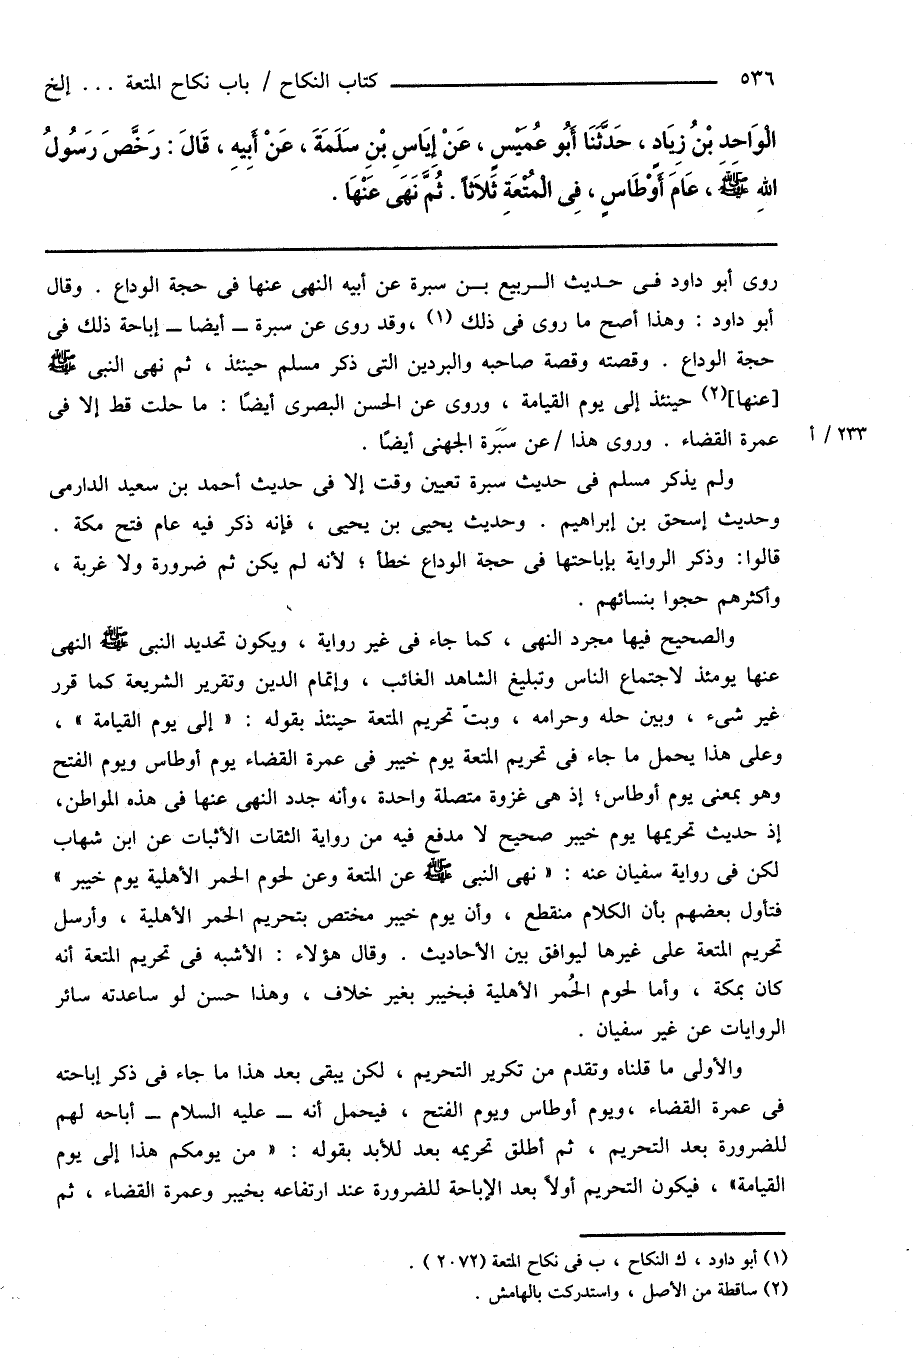 ٥٣٦ ــــــــــــــــــــــــ كتاب النكاح / باب نكاح المتعة ... إلخ
الْوَاحِدِ بْنُ زِيَادٍ ، حَدَّثَنَا أَبُو عُمَيْسٍ ، عَنْ إِيَاسِ بْنِ سَلَمَةَ ، عَنْ أَبِيهِ ، قَالَ : رَخَّصَ رَسُولُ
اللهِ ﷺ ، عَامَ أَوْطَاسٍ ، فِى الْمُتْعَةِ ثَلَاثًا . ثُمَّ نَهَى عَنْهَا .
روى أبو داود فى حديث الربيع بن سبرة عن أبيه النهى عنها فى حجة الوداع . وقال
أبو داود : وهذا أصح ما روى فى ذلك (١) ،وقد روى عن سبرة ــ أيضا ــ إباحة ذلك فى
حجة الوداع . وقصته وقصة صاحبه والبردين التى ذكر مسلم حينئذ ، ثم نهى النبى ﷺ
[عنها](٢) حينئذ إلى يوم القيامة ، وروى عن الحسن البصرى أيضًا : ما حلت قط إلا فى
عمرة القضاء . وروى هذا / عن سَبَرة الجهنى أيضًا .
٢٣٣ / أ
ولم يذكر مسلم فى حديث سبرة تعيين وقت إلا فى حديث أحمد بن سعيد الدارمى
وحديث إسحق بن إبراهيم . وحديث يحيى بن يحيى ، فإنه ذكر فيه عام فتح مكة .
قالوا: وذكر الرواية بإباحتها فى حجة الوداع خطأ ؛ لأنه لم يكن ثم ضرورة ولا غربة ،
وأكثرهم حجوا بنسائهم .
والصحيح فيها مجرد النهى ، كما جاء فى غير رواية ، ويكون تحديد النبى ﷺ النهى
عنها يومئذ لاجتماع الناس وتبليغ الشاهد الغائب ، وإتمام الدين وتقرير الشريعة كما قرر
غير شىء ، وبين حله وحرامه ، وبتّ تحريم المتعة حينئذ بقوله : « إلى يوم القيامة » ،
وعلى هذا يحمل ما جاء فى تحريم المتعة يوم خيبر فى عمرة القضاء يوم أوطاس ويوم الفتح
وهو بمعنى يوم أوطاس؛ إذ هى غزوة متصلة واحدة ،وأنه جدد النهى عنها فى هذه المواطن،
إذ حديث تحريمها يوم خيبر صحيح لا مدفع فيه من رواية الثقات الأثبات عن ابن شهاب
لكن فى رواية سفيان عنه : « نهى النبى ﷺ عن المتعة وعن لحوم الحمر الأهلية يوم خيبر »
فتأول بعضهم بأن الكلام منقطع ، وأن يوم خيبر مختص بتحريم الحمر الأهلية ، وأرسل
تحريم المتعة على غيرها ليوافق بين الأحاديث . وقال هؤلاء : الأشبه فى تحريم المتعة أنه
كان بمكة ، وأما لحوم الحُمر الأهلية فبخيبر بغير خلاف ، وهذا حسن لو ساعدته سائر
الروايات عن غير سفيان .
والأولى ما قلناه وتقدم من تكرير التحريم ، لكن يبقى بعد هذا ما جاء فى ذكر إباحته
فى عمرة القضاء ،ويوم أوطاس ويوم الفتح ، فيحمل أنه ــ عليه السلام ــ أباحه لهم
للضرورة بعد التحريم ، ثم أطلق تحريمه بعد للأبد بقوله : « من يومكم هذا إلى يوم
القيامة» ، فيكون التحريم أولاً بعد الإباحة للضرورة عند ارتفاعه بخيبر وعمرة القضاء ، ثم
(١) أبو داود ، ك النكاح ، ب فى نكاح المتعة (٢٠٧٢ ) .
(٢) ساقطة من الأصل ، واستدركت بالهامش .